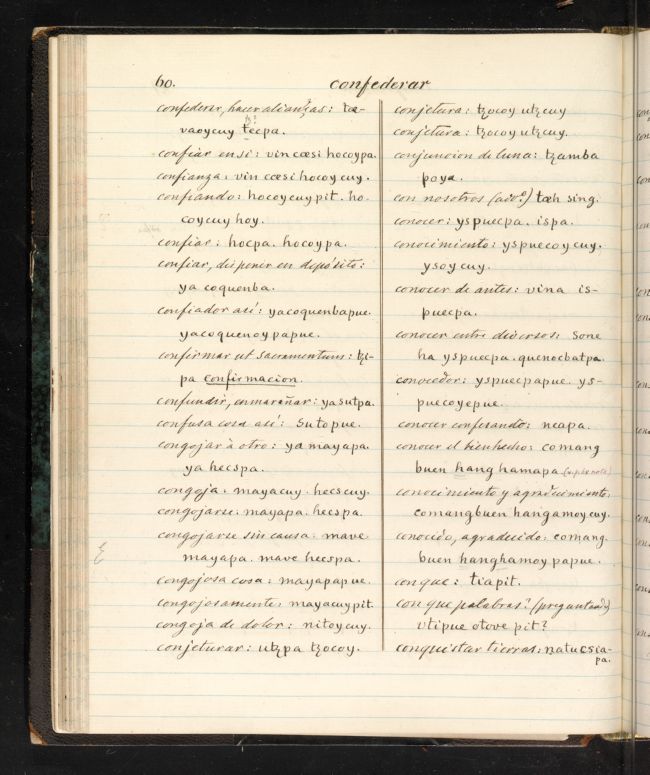 60.
confederar
confederar, hacer alianzas: tæ-
vaoycuy tecpa.
confiar en si: vin cœsi hocoypa.
confianza: vin cœsi hocoy cuy.
confiando: hocoycuypit. ho-
coycuy hoy.
confiar: hocpa. hocoypa.
confiar, disponer en depósito:
ya coquenba.
confiador asi: yacoquenbapue.
yacoquenoypapue.
confirmar ut sacramentum: tzi-
pa confirmacion.
confundir, enmarañar: yasutpa.
confusa cosa asi: sutopue.
congojar à otro: ya mayapa.
ya hecspa.
congoja: mayacuy. hecscuy.
congojarse: mayapa. hecspa.
congojarse sin causa: mave
mayapa. mave hecspa.
congojosa cosa: mayapapue.
congojosamente: mayacuypit.
congoja de dolor: nitoycuy.
conjeturar: utzpa tzocoy.
conjetura: tzocoy utzcuy
conjetura: tzocoy utzcuy.
conjuncion de luna: tzamba
poya.
con nosotros (advo.) tæh sing.
conocer: yspuecpa. ispa.
conocimiento: yspuecoycuy.
ysoycuy.
conocer de antes: vina is-
puecpa.
conocer entre diversos: sone
ha yspuecpa. quenocbatpa.
conocedor: yspuecpapue. ys-
puecoyepue.
conocer confesando: neapa.
conocer el bien hecho: comang
buen hang hamapa
conocimiento y agradecimiento:
comangbuen hangamoycuy.
conocido, agradecido: comang.
buen hanghamoy papue.
conque: tiapit.
con que palabras? (preguntando)
utipue otove pit?
conquistar tierras: natucsia-
pa.